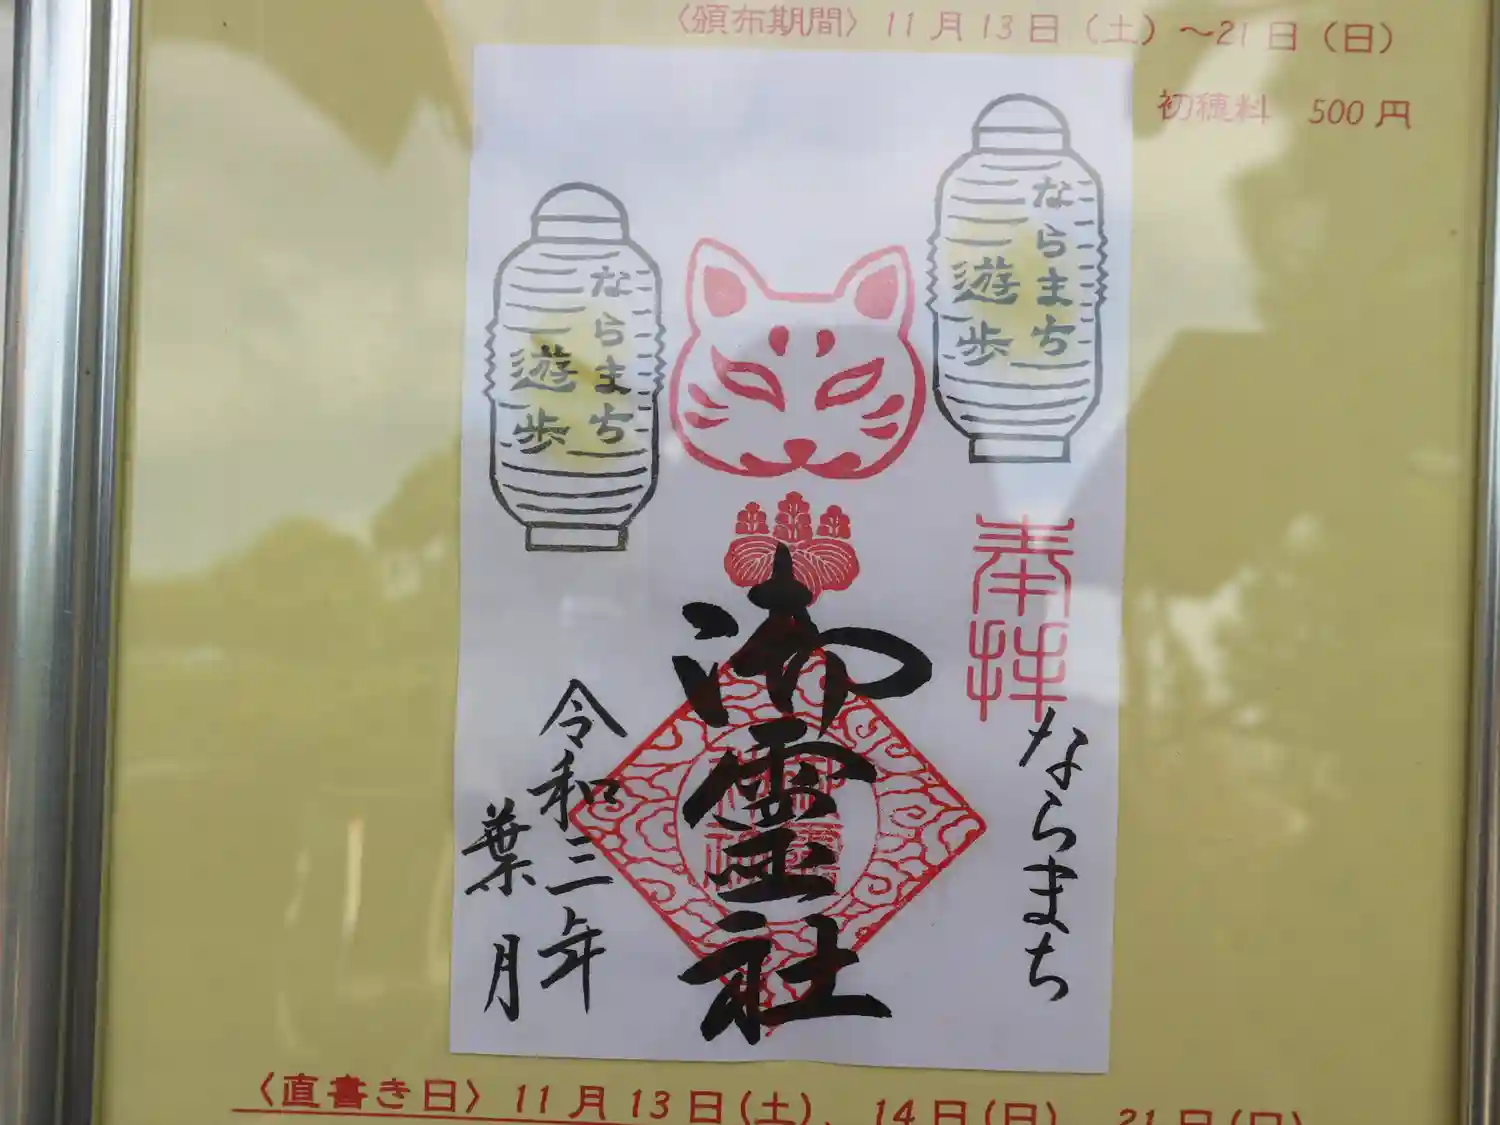 〈頒布期間〉11月13日（土）～21日（日）
初穂料　500円
ならまち
遊歩
ならまち
遊歩
奉拝
ならまち
御霊社
令和三年
葉月
〈直書き日〉11月13日(土)、14日(日)、21日(日)